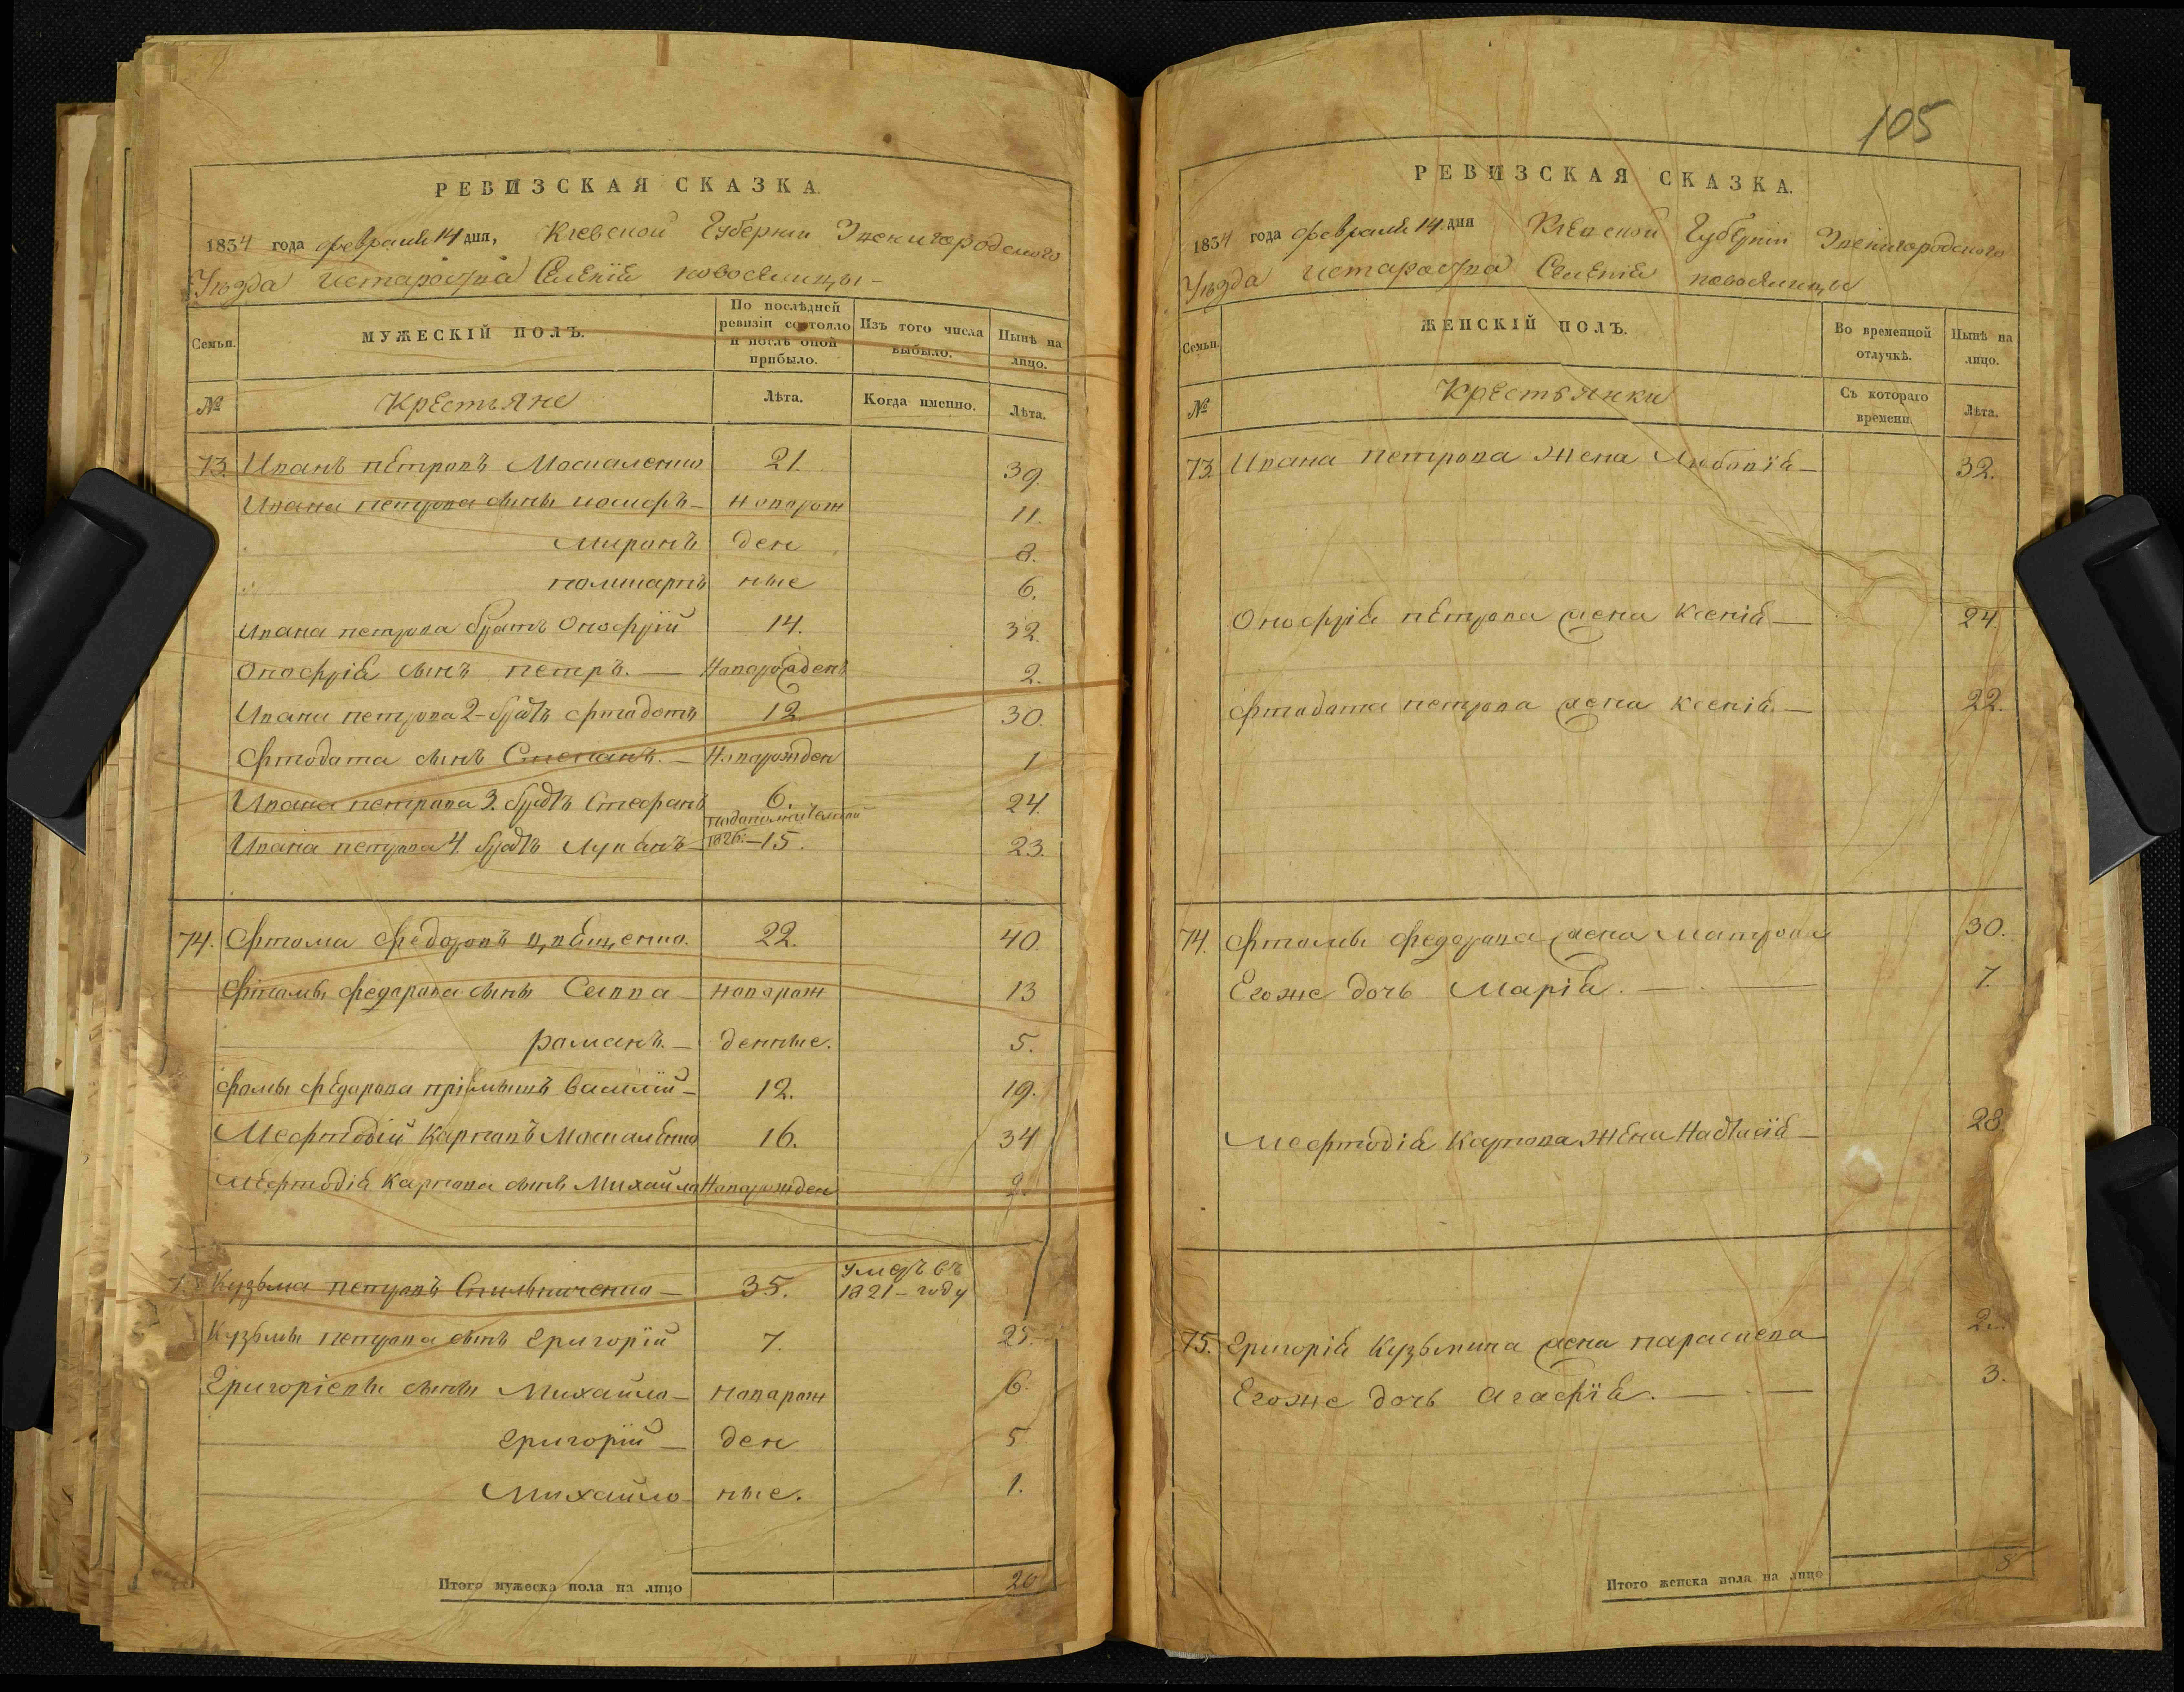 РЕВИЗСКАЯ СКАЗКА.
1834 года февраля 14 дня, Кіевской Губерніи Звенигородского
Уезда Староства Селенія новоселицы
Семьи.
МУЖЕСКІЙ ПОЛЪ.
По послѣдней ревизіи состояло и послѣ оной прибыло.
Изъ того числа выбыло.
Нынѣ на лицо.
№
Крестяне
Лѣта.
Когда именно.
Лѣта.
73. Иванъ петровъ Москаленко 21. 39.
Ивана петрова сыны иосифъ новорож 11.
миронъ ден 8.
поликарпъ ные 6.
Ивана петрова братъ Онофрій 14. 32.
Онофрія сынъ петръ. Новорожденъ 2.
Ивана петрова 2-братъ фтодотъ 12. 30.
Фтодота сынъ Степанъ. Новорожден 1
Ивана петрова 3. братъ Стефанъ 6. 24.
Ивана петрова 4. братъ Лукъянъ 1826.-15. 23.
74. Фтома Федоровъ 22. 40.
Фтомы федорова сыны Савва новорож 13
романъ. денные. 5.
Фомы Федорова пріёмышъ Василій 12. 19.
Мефтодій Карповъ Москаленко 16. 34
Мефтодія Карпова сынъ Михайло Новорожден 2.
Кузьма петровъ 35. умеръ въ
1821-году
Кузьмы петрова сынъ Григорій 7. 25.
Григоріевы сыны Михайло новорож 6.
Григорій ден 5
Михайло ные. 1.
Итого мужеска пола на лицо 20
105
РЕВИЗСКАЯ СКАЗКА.
1834 года февраля 14 дня Кіевской Губерніи Звенигородского
Уезда Староства Селенія новоселицы
Семьи.
ЖЕНСКІЙ ПОЛЪ.
Во временной отлучкѣ.
Нынѣ на лицо.
№
Крестьянки
Съ котораго времени.
Лѣта.
73. Ивана петрова жена Любовія 32.
Онофрія петрова жена Ксенія 24.
Фтодота петрова жена Ксенія. 22.
74. Фтомы федорова жена Матрона 30.
Егоже дочь Марія. 7.
Мефтодія Карпова жена Настасія 28
75. Григорія Кузьмина жена параскева
Егоже дочь Агафія. 3.
Итого женска пола на лицо 8